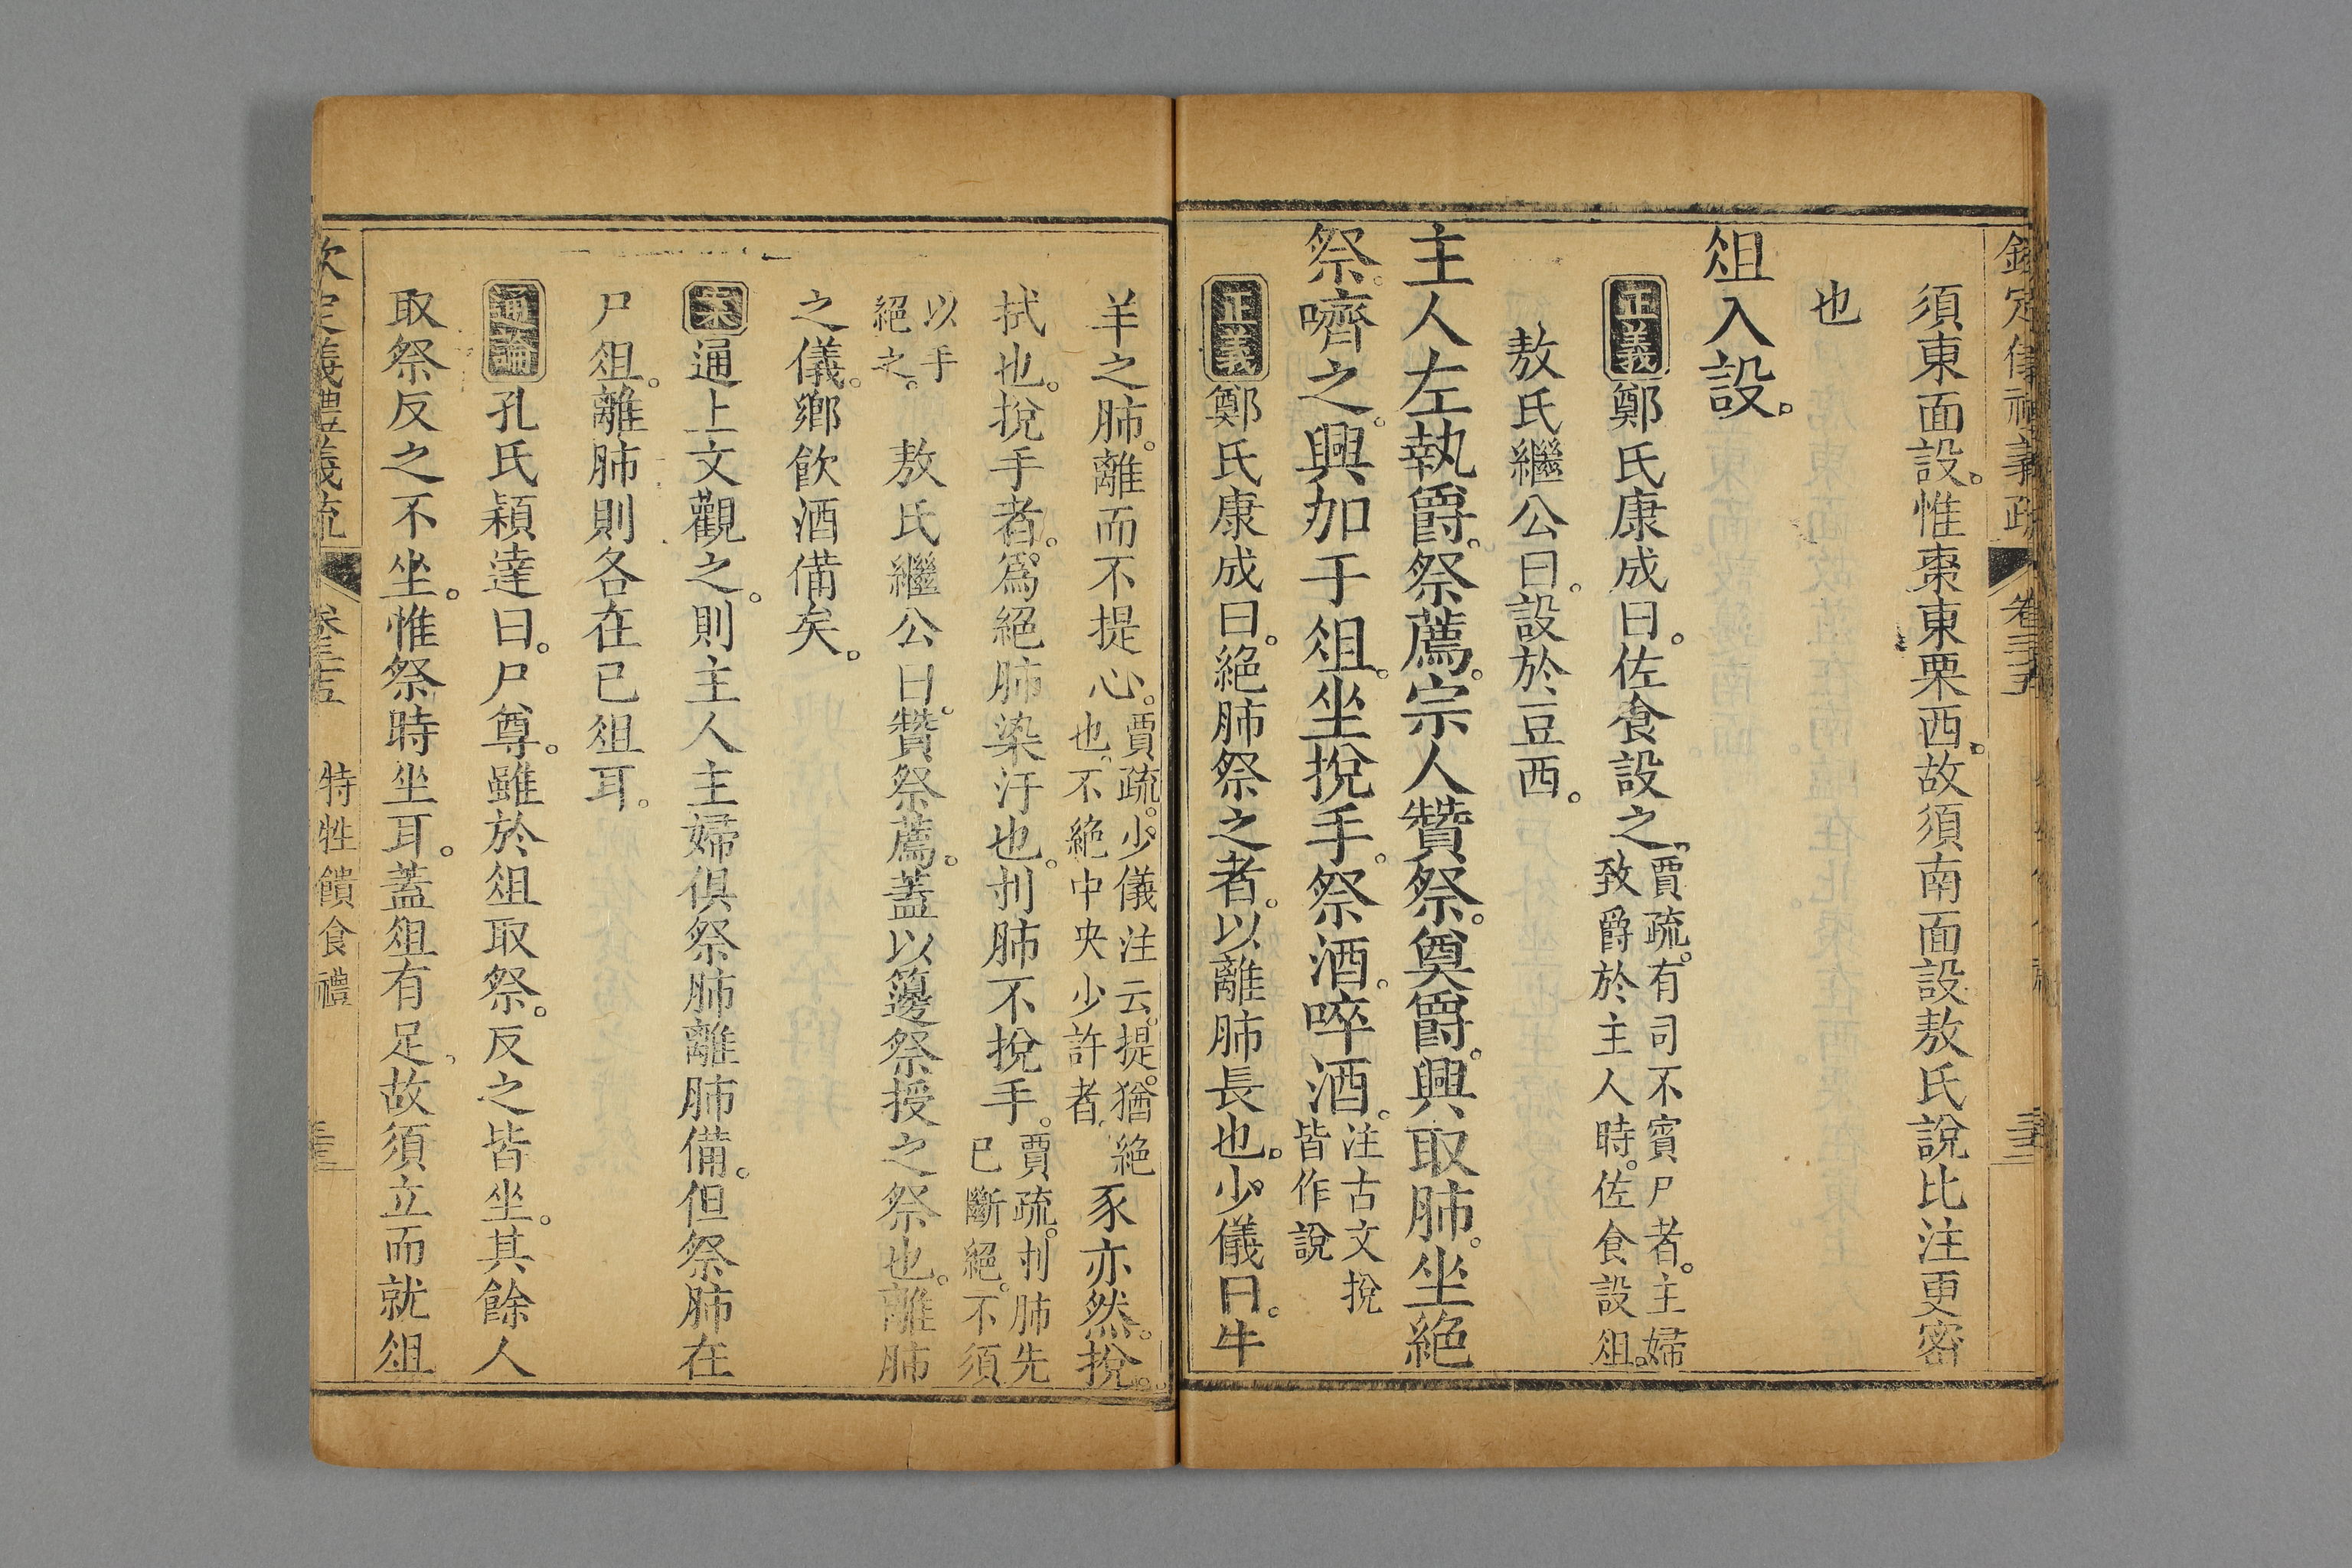 須東面設。惟棗東栗西。故須南面設敖氏說比注更密
也
俎入設。
正義鄭氏康成曰。佐食設之。賈疏。有司不賓尸者。主婦致爵於主人時。佐食設俎。
敖氏繼公曰。設於豆西。
主人左執爵。祭薦。宗人贊祭。奠爵。興取肺。坐絕
祭。嚌之。興加于俎。坐挩手。祭酒。啐酒。注古文挩皆作說
正義鄭氏康成曰。絕肺祭之者。以離肺長也。少儀曰。牛
羊之肺。離而不提心。賈疏。少儀注云。提。猶絕也。不絕中央少許者。豕亦然。挩。
拭也。挩手者。爲絕肺染汙也。刌肺不挩手。賈疏。刌肺先已斷絕。不須
以手絕之。敖氏繼公曰。贊祭薦。蓋以籩祭授之祭也。離肺
之儀。鄉飲酒備矣。
案通上文觀之。則主人主婦俱祭肺離肺備。但祭肺在
尸俎。離肺則各在已俎耳。
通論孔氏穎達曰。尸尊。雖於俎取祭。反之皆坐。其餘人
取祭反之不坐。惟祭時坐耳。蓋俎有足。故須立而就俎
欽定義禮義疏
特牲饋食禮